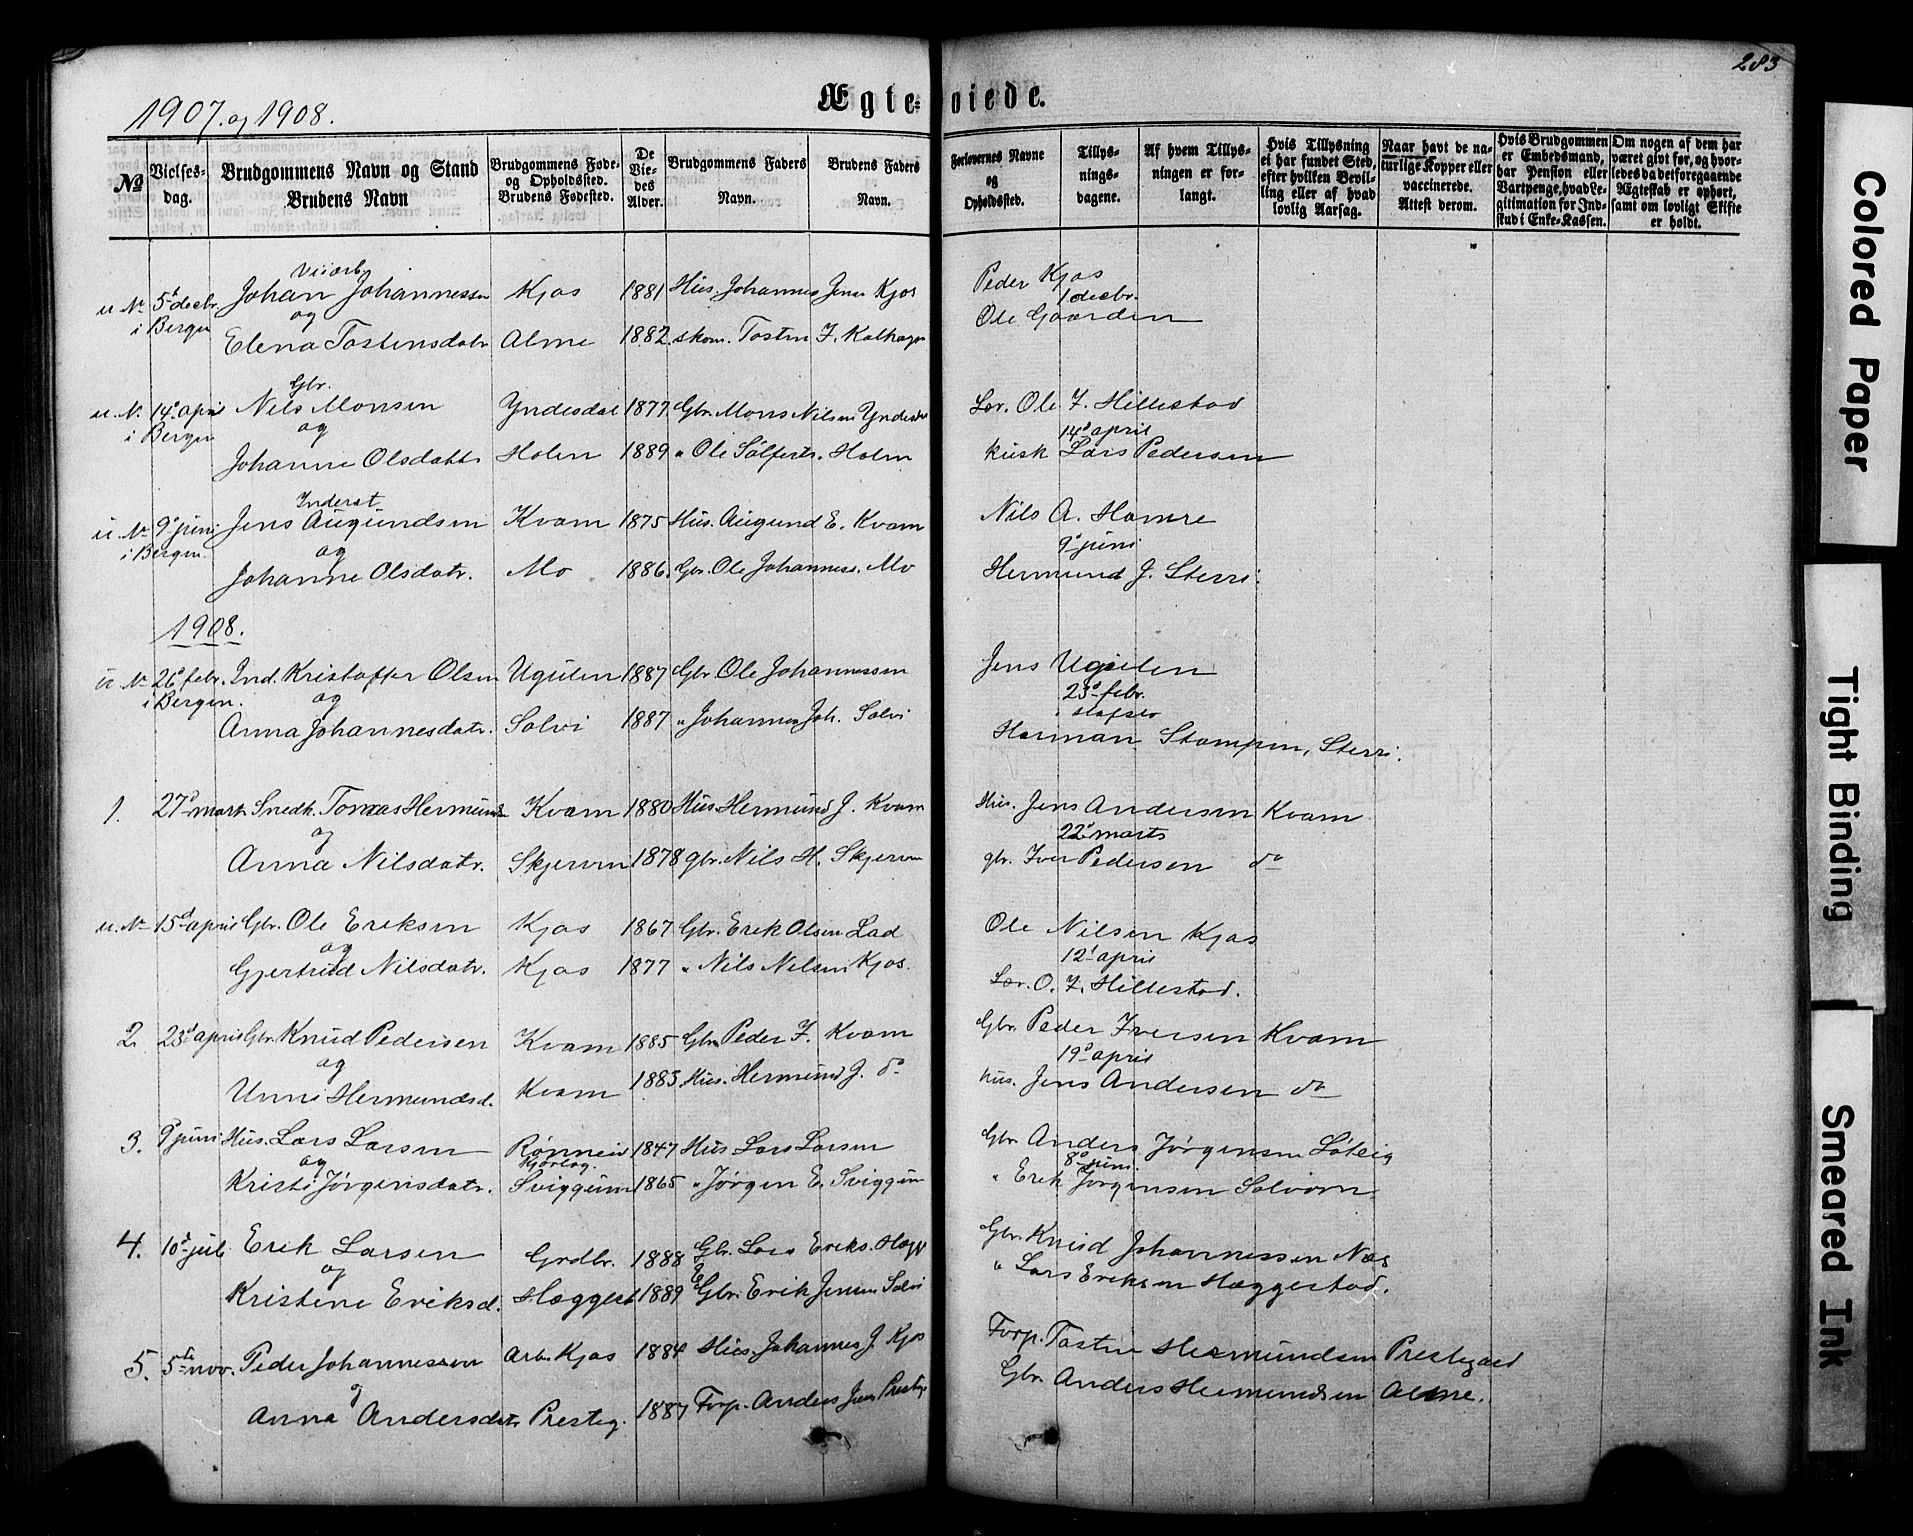 283
1907. og 1908.
Ægteviede.
No
Vielses-dag.
Brudgommens Navn og Stand
Brudens Navn
Brudgommens Føde- og Opholdssted.
Brudens Fødested.
De Viedes Alder.
Brudgommens Faders Navn.
Brudens Faders Navn.
Forlovernes Navne og Opholdssted.
Tillysningsdagene.
Af hvem Tillysningen er forlangt.
Hvis Tillysning ei har fundet Sted, efter hvilken Bevilling eller af hvad lovlig Aarsag.
Naar havt de naturlige Kopper eller vaccinerede. Attest derom.
Hvis Brudgommen er Embedsmand, har Pension eller Vartpenge, hvad Legitimation for Indskud i Enke-Kassen.
Om nogen af dem har været givt før, og hvorledes da det foregaaende Ægteskab er ophørt, samt om lovligt Skifte er holdt.
u. No 5t decbr. Johan Johannessen Kjos 1881 Hus. Johannes Jens. Kjos Peder Kjos
i Bergen og 1 decbr.
Elena Tostensdatr Alme 1882. skom. Tosten Ole Gaarden
Gbr.
u. No. 14d april Nils Monsen Yndesdal 1877. Gbr. Mons Nilsen Yndesdal Lær. Ole I. Hillestad
i Bergen og 14d april
Johanne Olsdattr Holen 1889 " Ole Holen kusk Lars Pedersen
Inderst
u. No 9d juni Jens Augundsen Kvam 1875 Hus. Augund E. Kvam Nils A. Hamre
i Bergen. og 9d juni
Johanne Olsdatr. Mo 1886. Gbr. Ole Johanness. Mo Hermund J. Sterri.
1908.
u No 26d febr. Ind. Kristoffer Olsen Ugulen 1887 Gbr. Ole Johannessen Jens Ugulen
i Bergen. og 23d febr.
Anna Johannesdatr. Solvi 1887 " Johannes Joh. Solvi Herman Stampen, Sterri.
1. 27d marts Snedk. Tomas Hermunds Kvam 1880 Hus. Hermund J. Kvam Hus. Jens Andersen Kvam
og 22d marts
Anna Nilsdatr. Skjerven 1878 gbr. Nils H. Skjerven gbr. Iver Pedersen do
u. No 15d april Gbr. Ole Eriksen Kjos 1867 Gbr. Erik Olsen Lad Ole Nilsen Kjos
og 12t april
Gjertrud Nilsdatr. Kjos 1877 " Nils Nilsen Kjos. Lær. O. I. Hillestad.
2. 23d april Gbr. Knud Pedersen Kvam 1885 Gbr. Peder I. Kvam Gbr. Peder Iversen Kvam
og 19d april
Unni Hermundsd. Kvam 1883 Hus. Hermund J. do Hus. Jens Andersen do
3. 9d juni Hus. Lars Larsen Rønnei 1847 Hus Lars Larsen Gbr. Anders Jørgensen
og 8d juni
Kristi Jørgensdatr. Sviggum 1865 " Jørgen E. Sviggum " Erik Jørgensen Solvorn
4. 10d juli Erik Larsen Grdbr. 1888 Gbr. Lars Eriks. Hægg Gbr. Knud Johannessen Næs
og
Kristene Eriksd. Hæggest 1889 Gbr. Erik Jensen Solvi " Lars Eriksen Hæggestad.
5. 5te nov. Peder Johannessen Arb. Kjos 1884 Hus. Johannes J. Kjos Forp. Tosten Hermundsen Prestegard
og
Anna Andersdatr Presteg. 1887 Forp. Anders Jens. Presteg Gbr. Anders Hermundsen Alme.
Colored Paper
Tight Binding
Smeared Ink